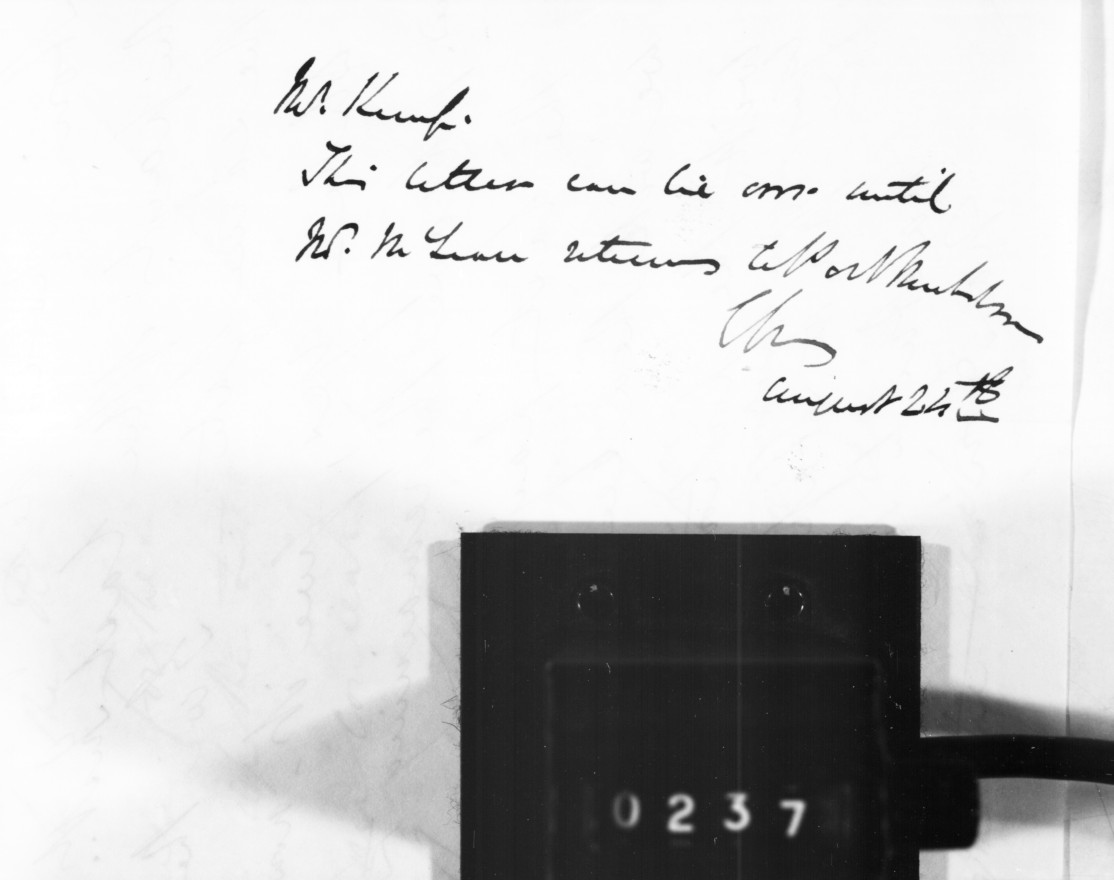 Mr. Kemp.
This letter can lie over until
Mr. McLean returns to Port Nicholson
August 24th
0237